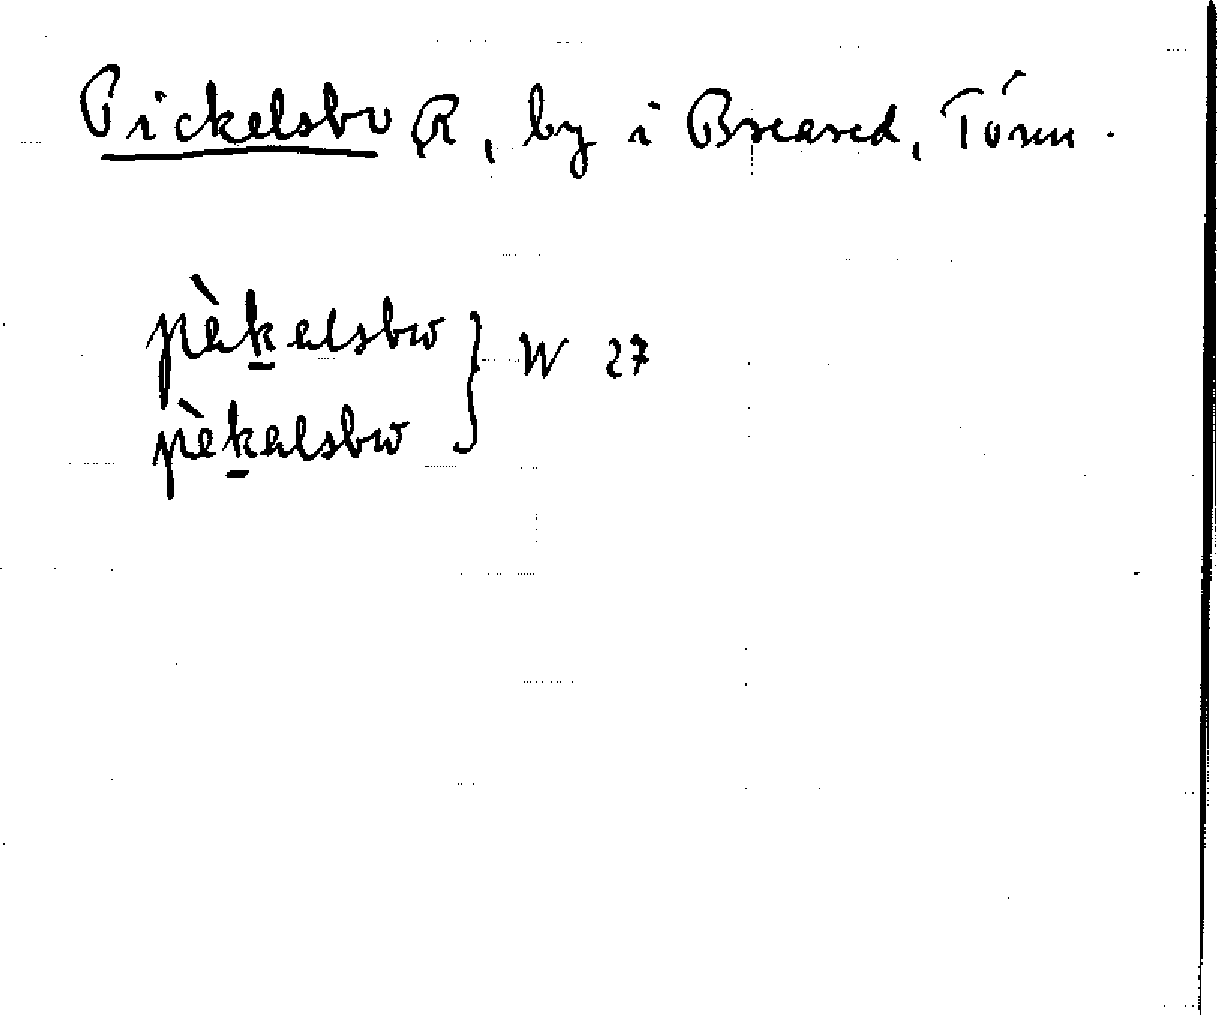 Pickelsbo R, by i Breared, Tönn.
pèkelsbω } W 27
pèkelsbω